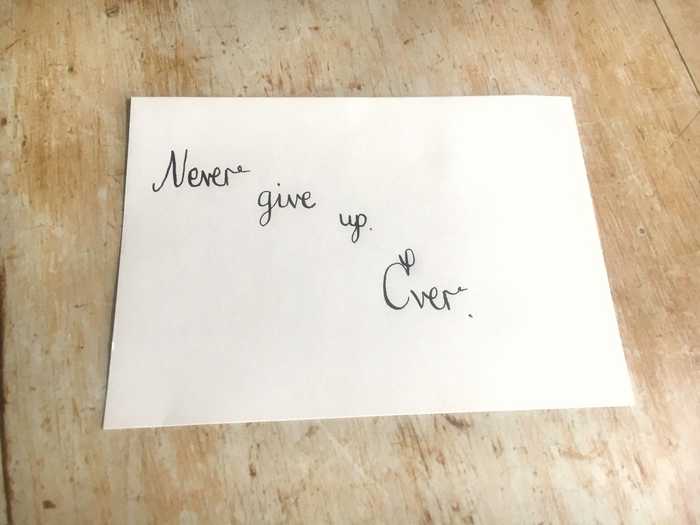 Never
give
up.
Ever.